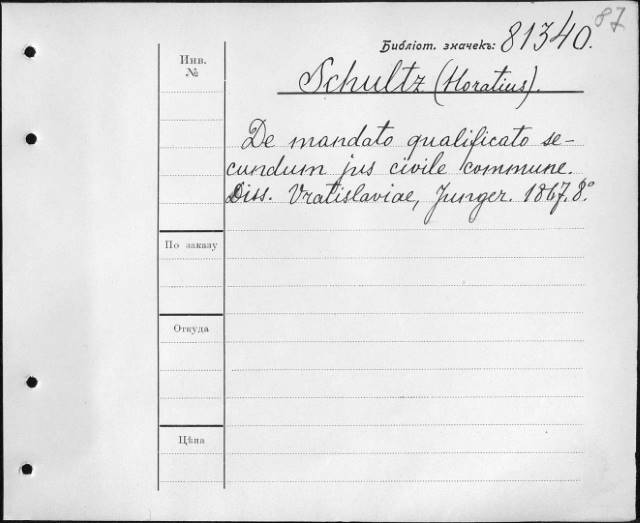 87
Библіот. значекъ: 81340.
Инв.
№
Schultz (Horatius).
De mandato qualificato se-
cundum jus civile commune.
Diss. Vratislaviae, Junger. 1867. 8.°
По заказу
Откуда
Цѣна